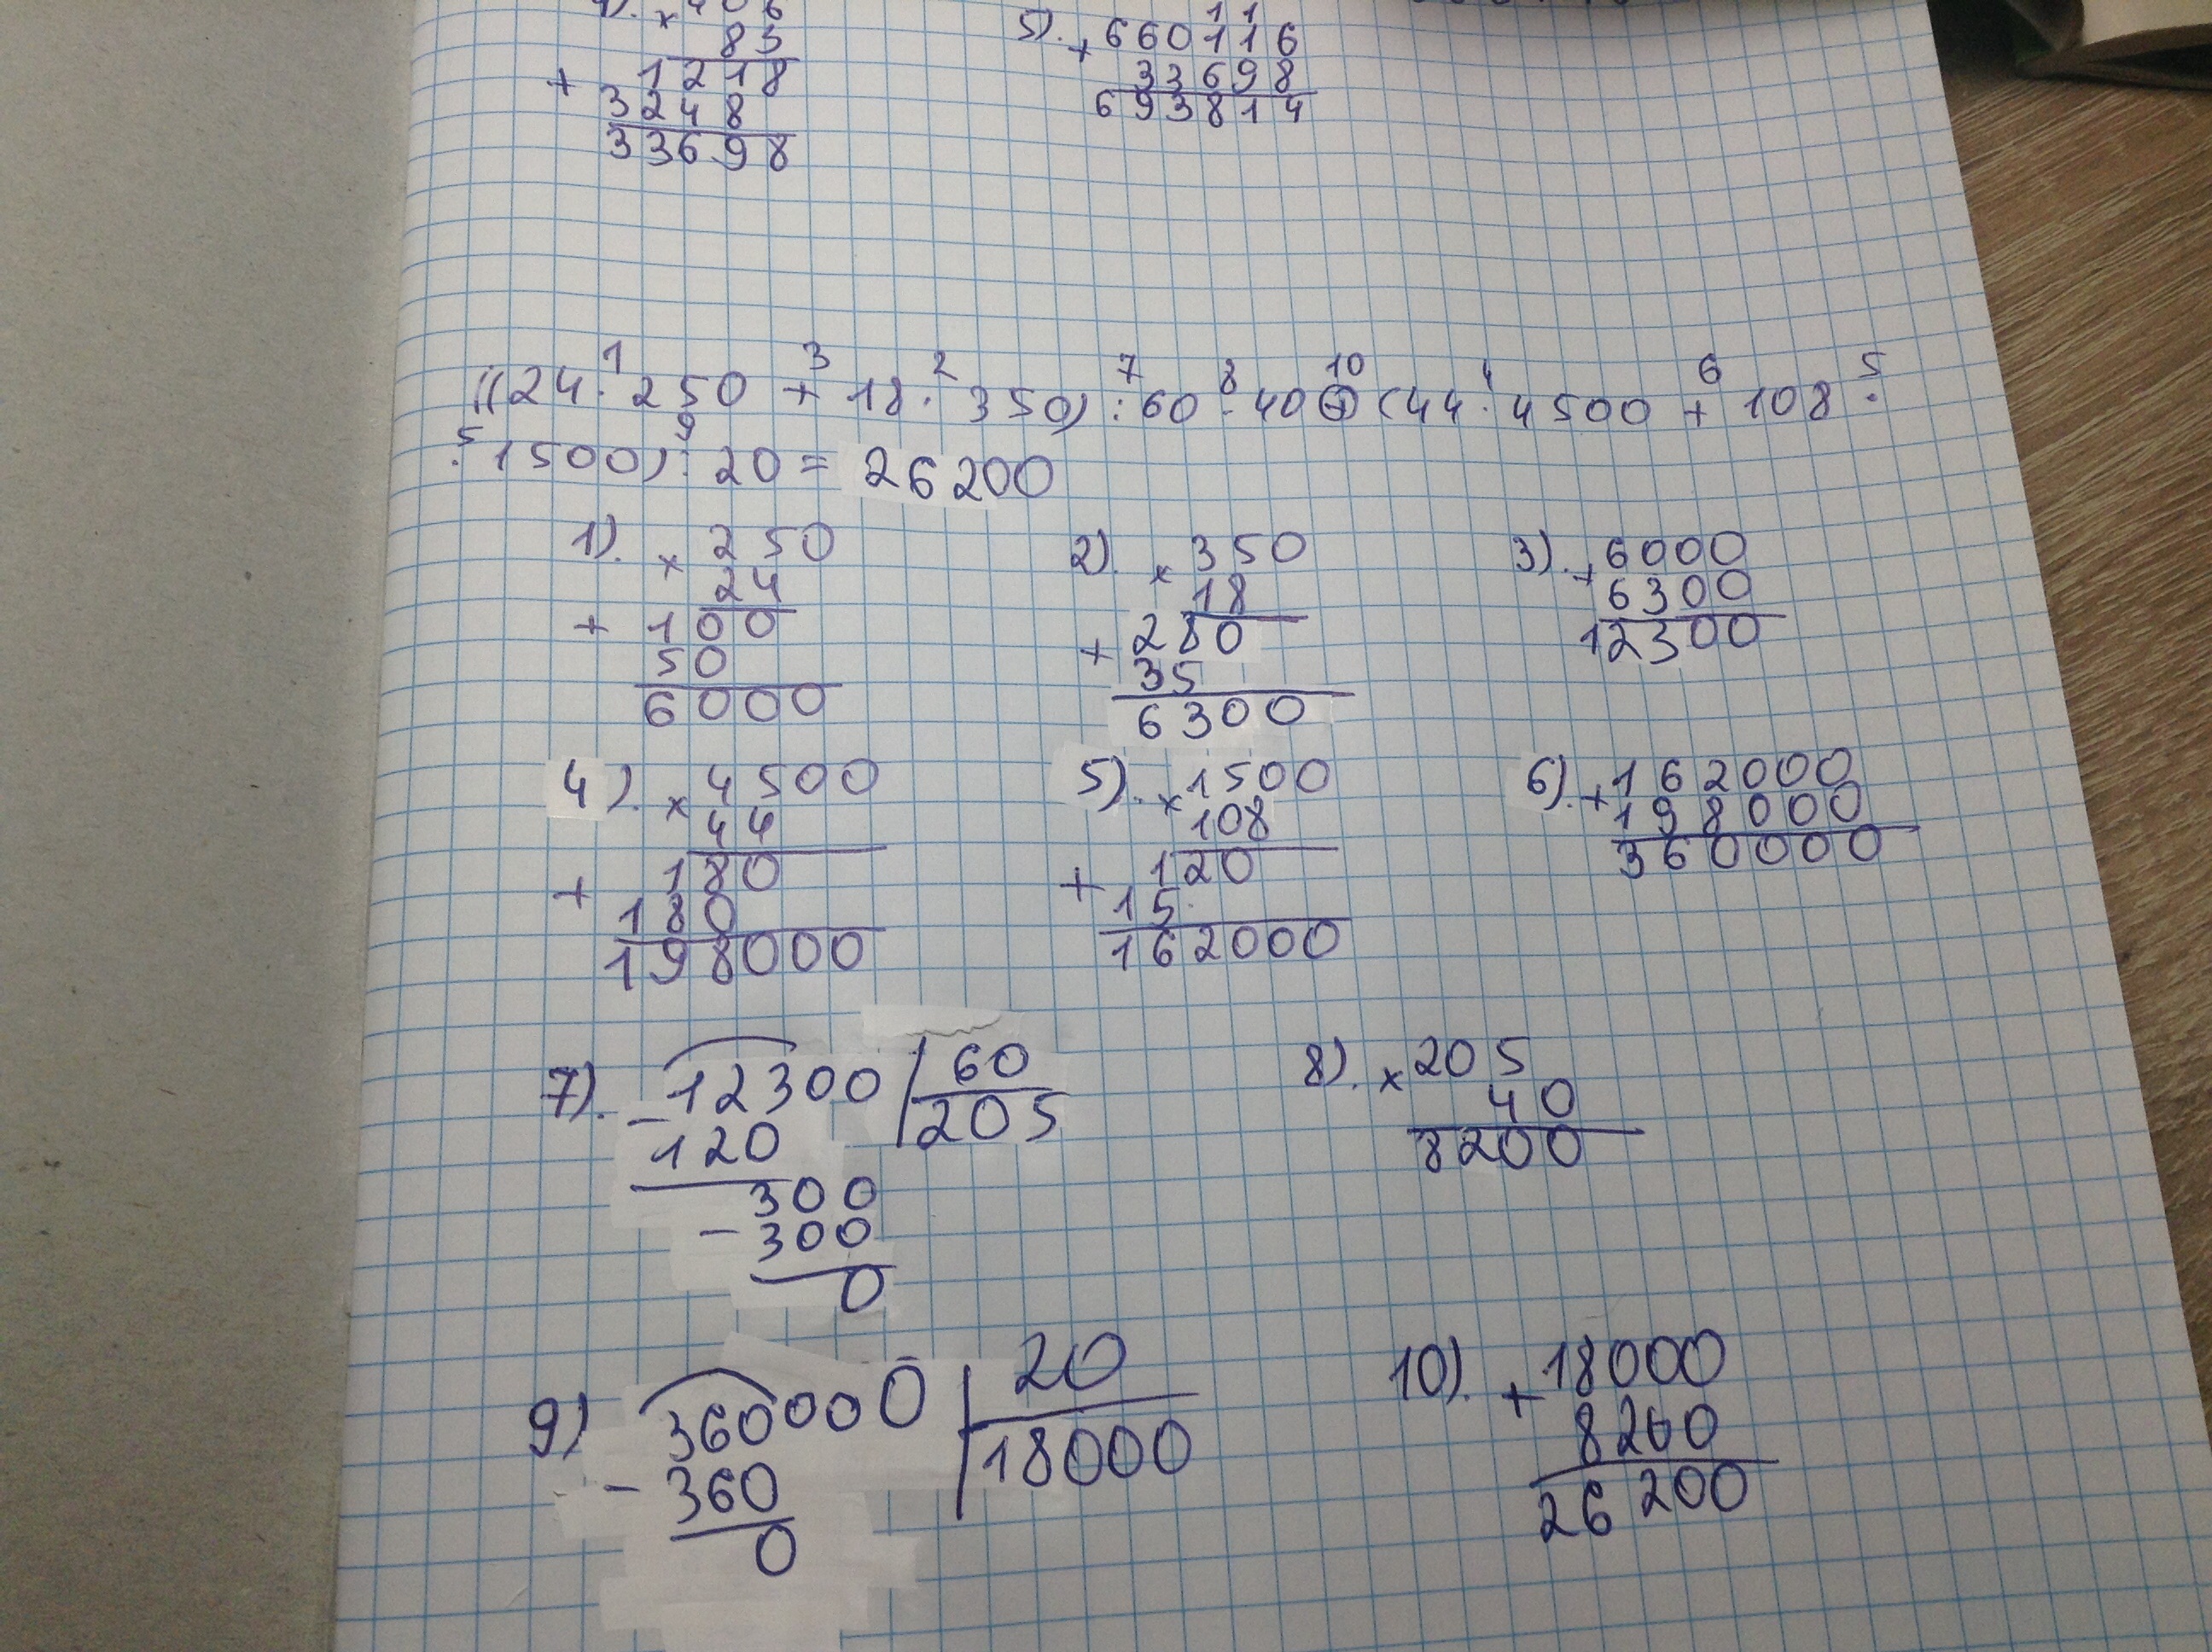 4). × 406
83
+ 1218
3248
33698
5). + 660116
33698
693814
((24 · 250 + 18 · 350) : 60 · 40 + (44 · 4500 + 108 ·
· 1500) : 20 = 26200
1). × 250
24
+ 100
50
6000
2). × 350
18
+ 280
35
6300
3). + 6000
6300
12300
4). × 4500
44
+ 180
180
198000
5). × 1500
108
+ 120
15
162000
6). + 162000
198000
360000
7). - 12300 | 60
120 205
300
- 300
0
8). × 205
40
8200
9) 360000 | 20
- 360 18000
0
10). + 18000
8200
26200